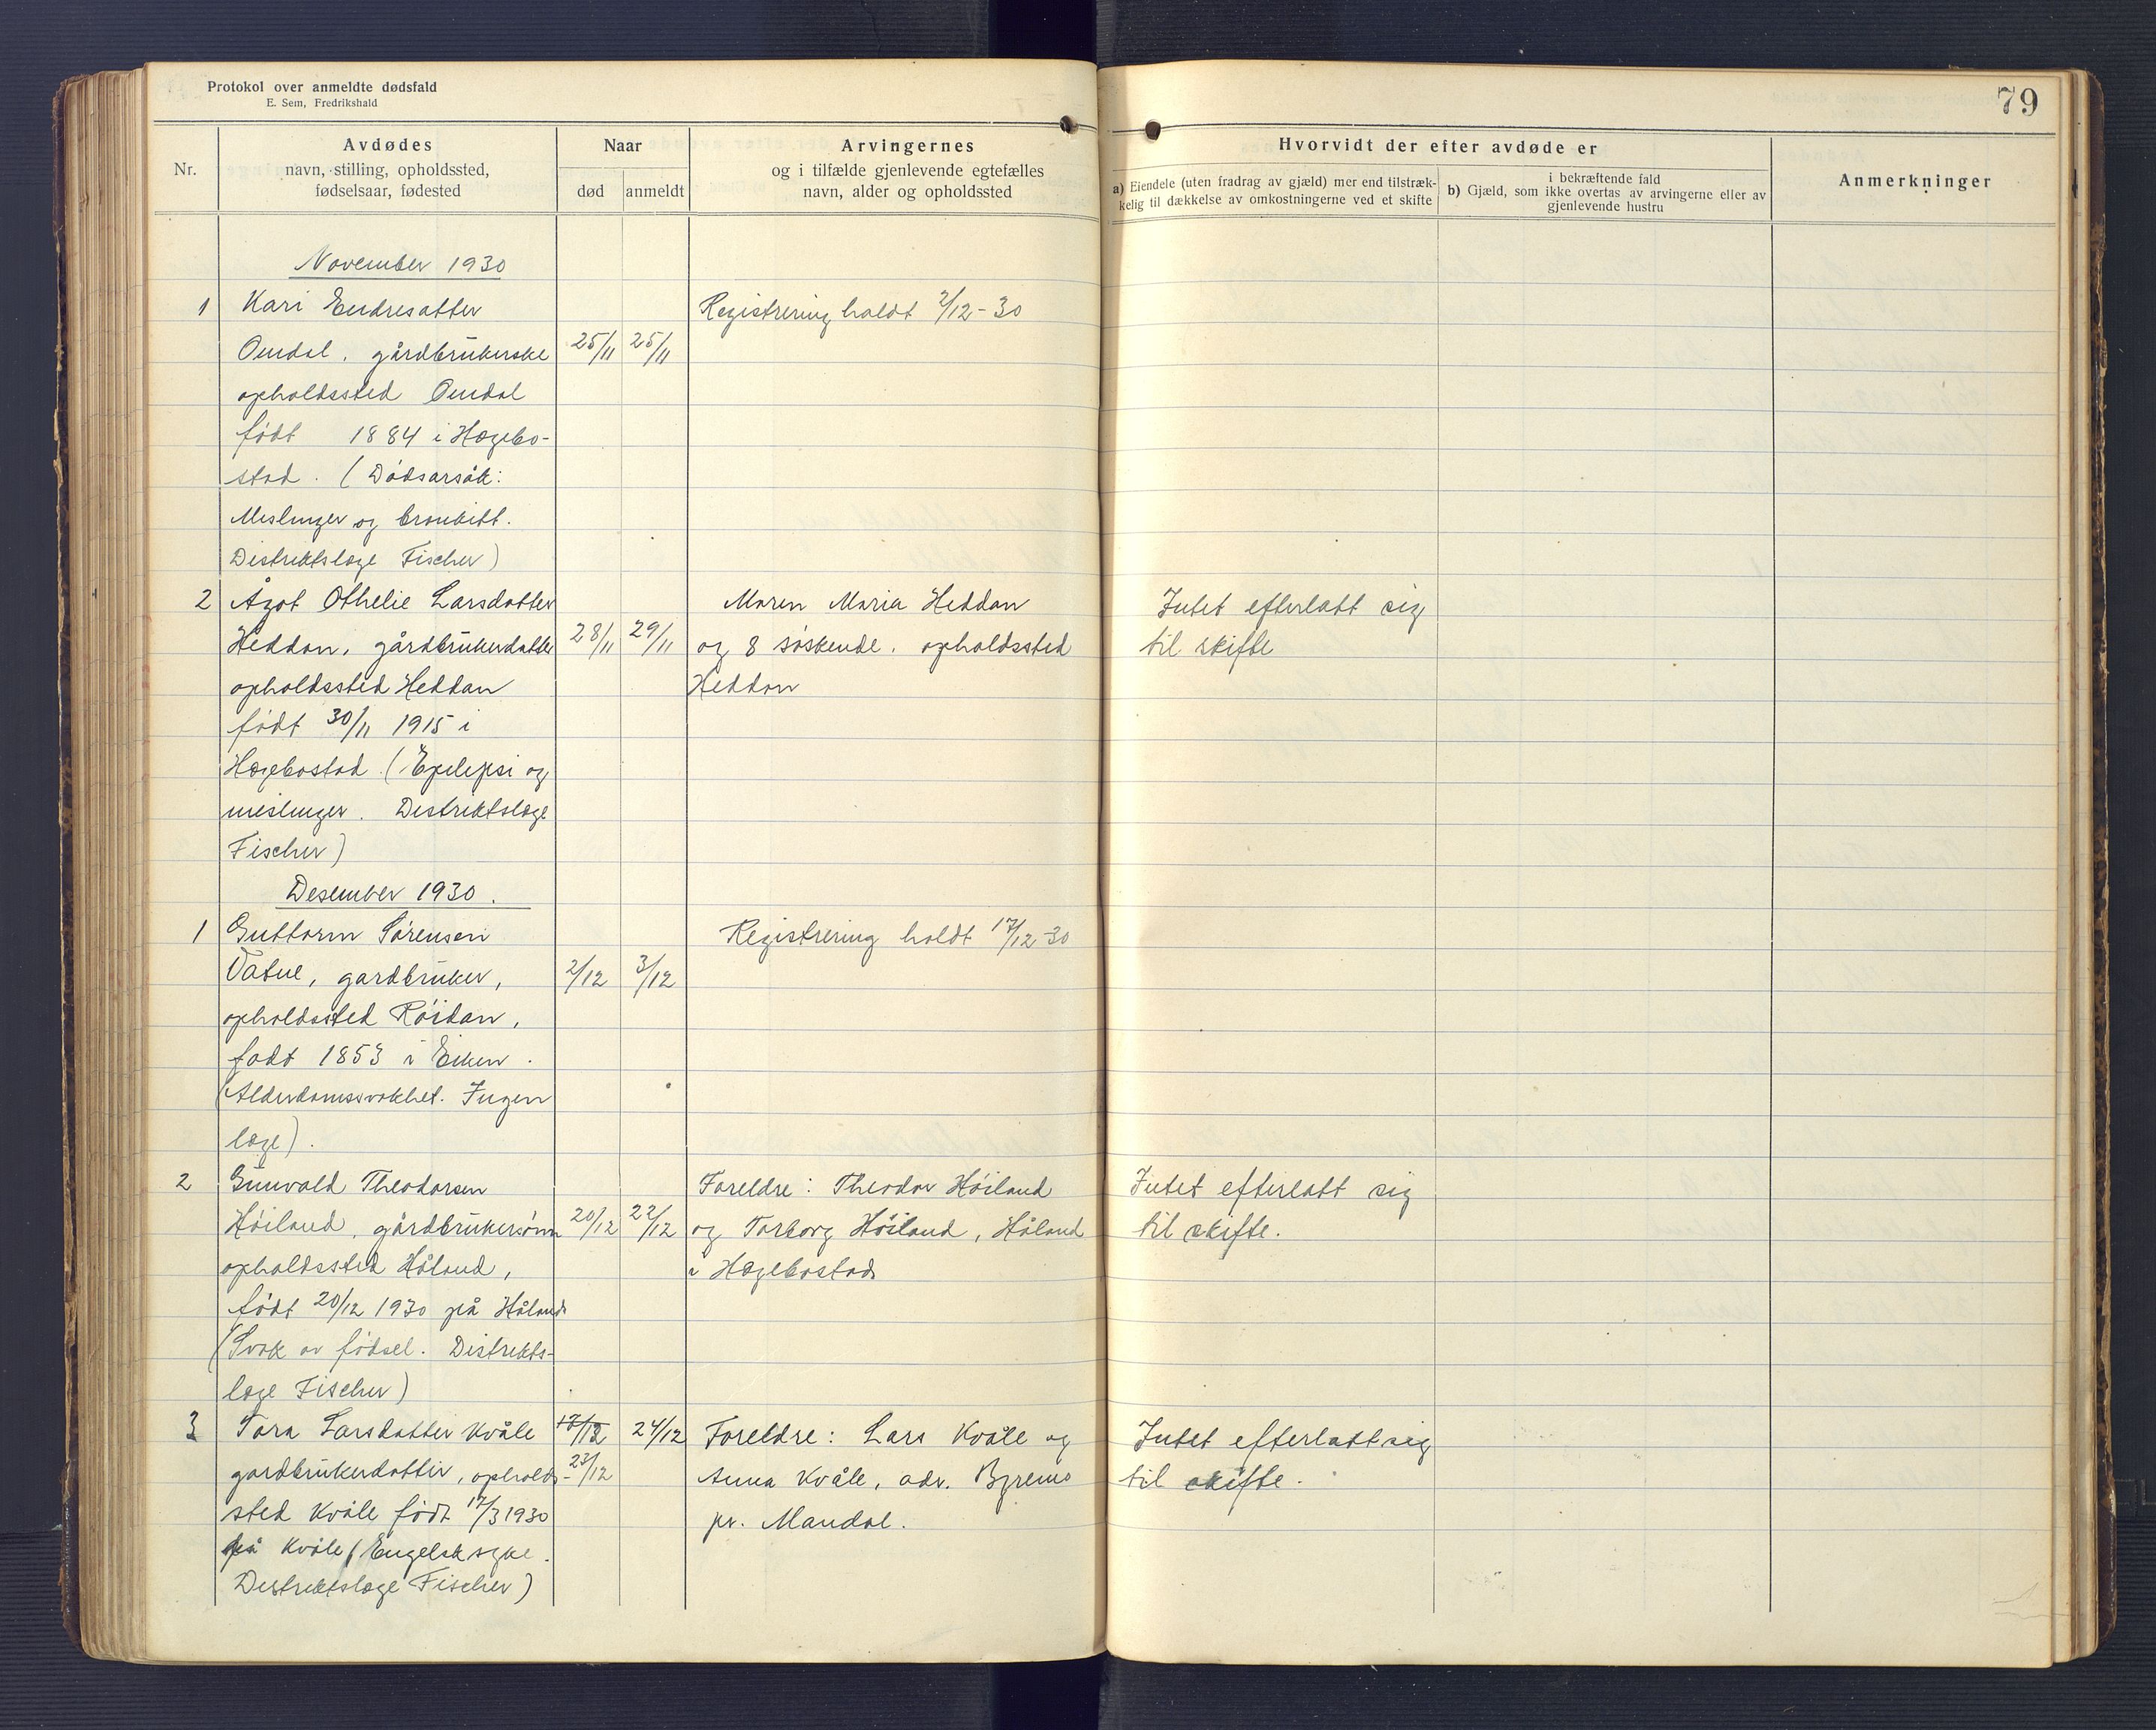 Protokol over anmeldte dødsfald
E. Sem, Fredrikshald
79
Nr.
Avdødes
navn, stilling, opholdssted,
fødselsaar, fødested
Naar
død
anmeldt
Arvingernes
og i tilfælde gjenlevende egtefælles
navn, alder og opholdssted
Hvorvidt der efter avdøde er
a) Eiendele (uten fradrag av gjæld) mer end tilstræk-
kelig til dækkelse av omkostningerne ved et skifte
i bekræftende fald
b) Gjæld, som ikke overtas av arvingerne eller av
gjenlevende hustru
Anmerkninger
November 1930
1 Kari Endresatter
Omdal, gårdbrukerske 25/11 25/11
opholdssted Omdal
født 1884 i Hægebo-
stad. (Dødsarsåk:
Meslinger og bronkitt.
Distriktslæge Fischer)
Registrering holdt 2/12-30
2 Ågot Othelie Larsdatter
Heddan, gårdbrukerdatter 28/11 29/11
opholdssted Heddan
født 30/11 1915 i
Hægebostad (Epilepsi og
meslinger. Distriktslæge
Fischer)
Maren Maria Heddan
og 8 søskende, opholdssted
Heddan
Intet efterlatt sig
til skifte
Desember 1930.
1 Guttorm Sørensen
Vatne, gardbruker, 2/12 3/12
opholdssted Röidan,
født 1853 i Eiken.
(Alderdomssvakhet. Ingen
læge).
Registrering holdt 17/12-30
2 Gunvald Theodorsen
Höiland, gårdbrukersønn 20/12 22/12
opholdssted Håland,
født 20/12 1930 på Håland
(Svak av födsel. Distrikts-
læge Fischer)
Foreldre: Theodor Höiland
og Torborg Höiland, Håland
i Hægebostad
Intet efterlatt sig
til skifte.
3 Tora Larsdatter Kvåle 17/12 24/12
gardbrukerdatter, opholds- 23/12
sted Kvåle født 17/3 1930
på Kvåle (Engelsk syke.
Distriktslæge Fischer)
Foreldre: Lars Kvåle og
Anna Kvåle, adr. Byremo
pr. Mandal.
Intet efterlatt sig
til skifte.